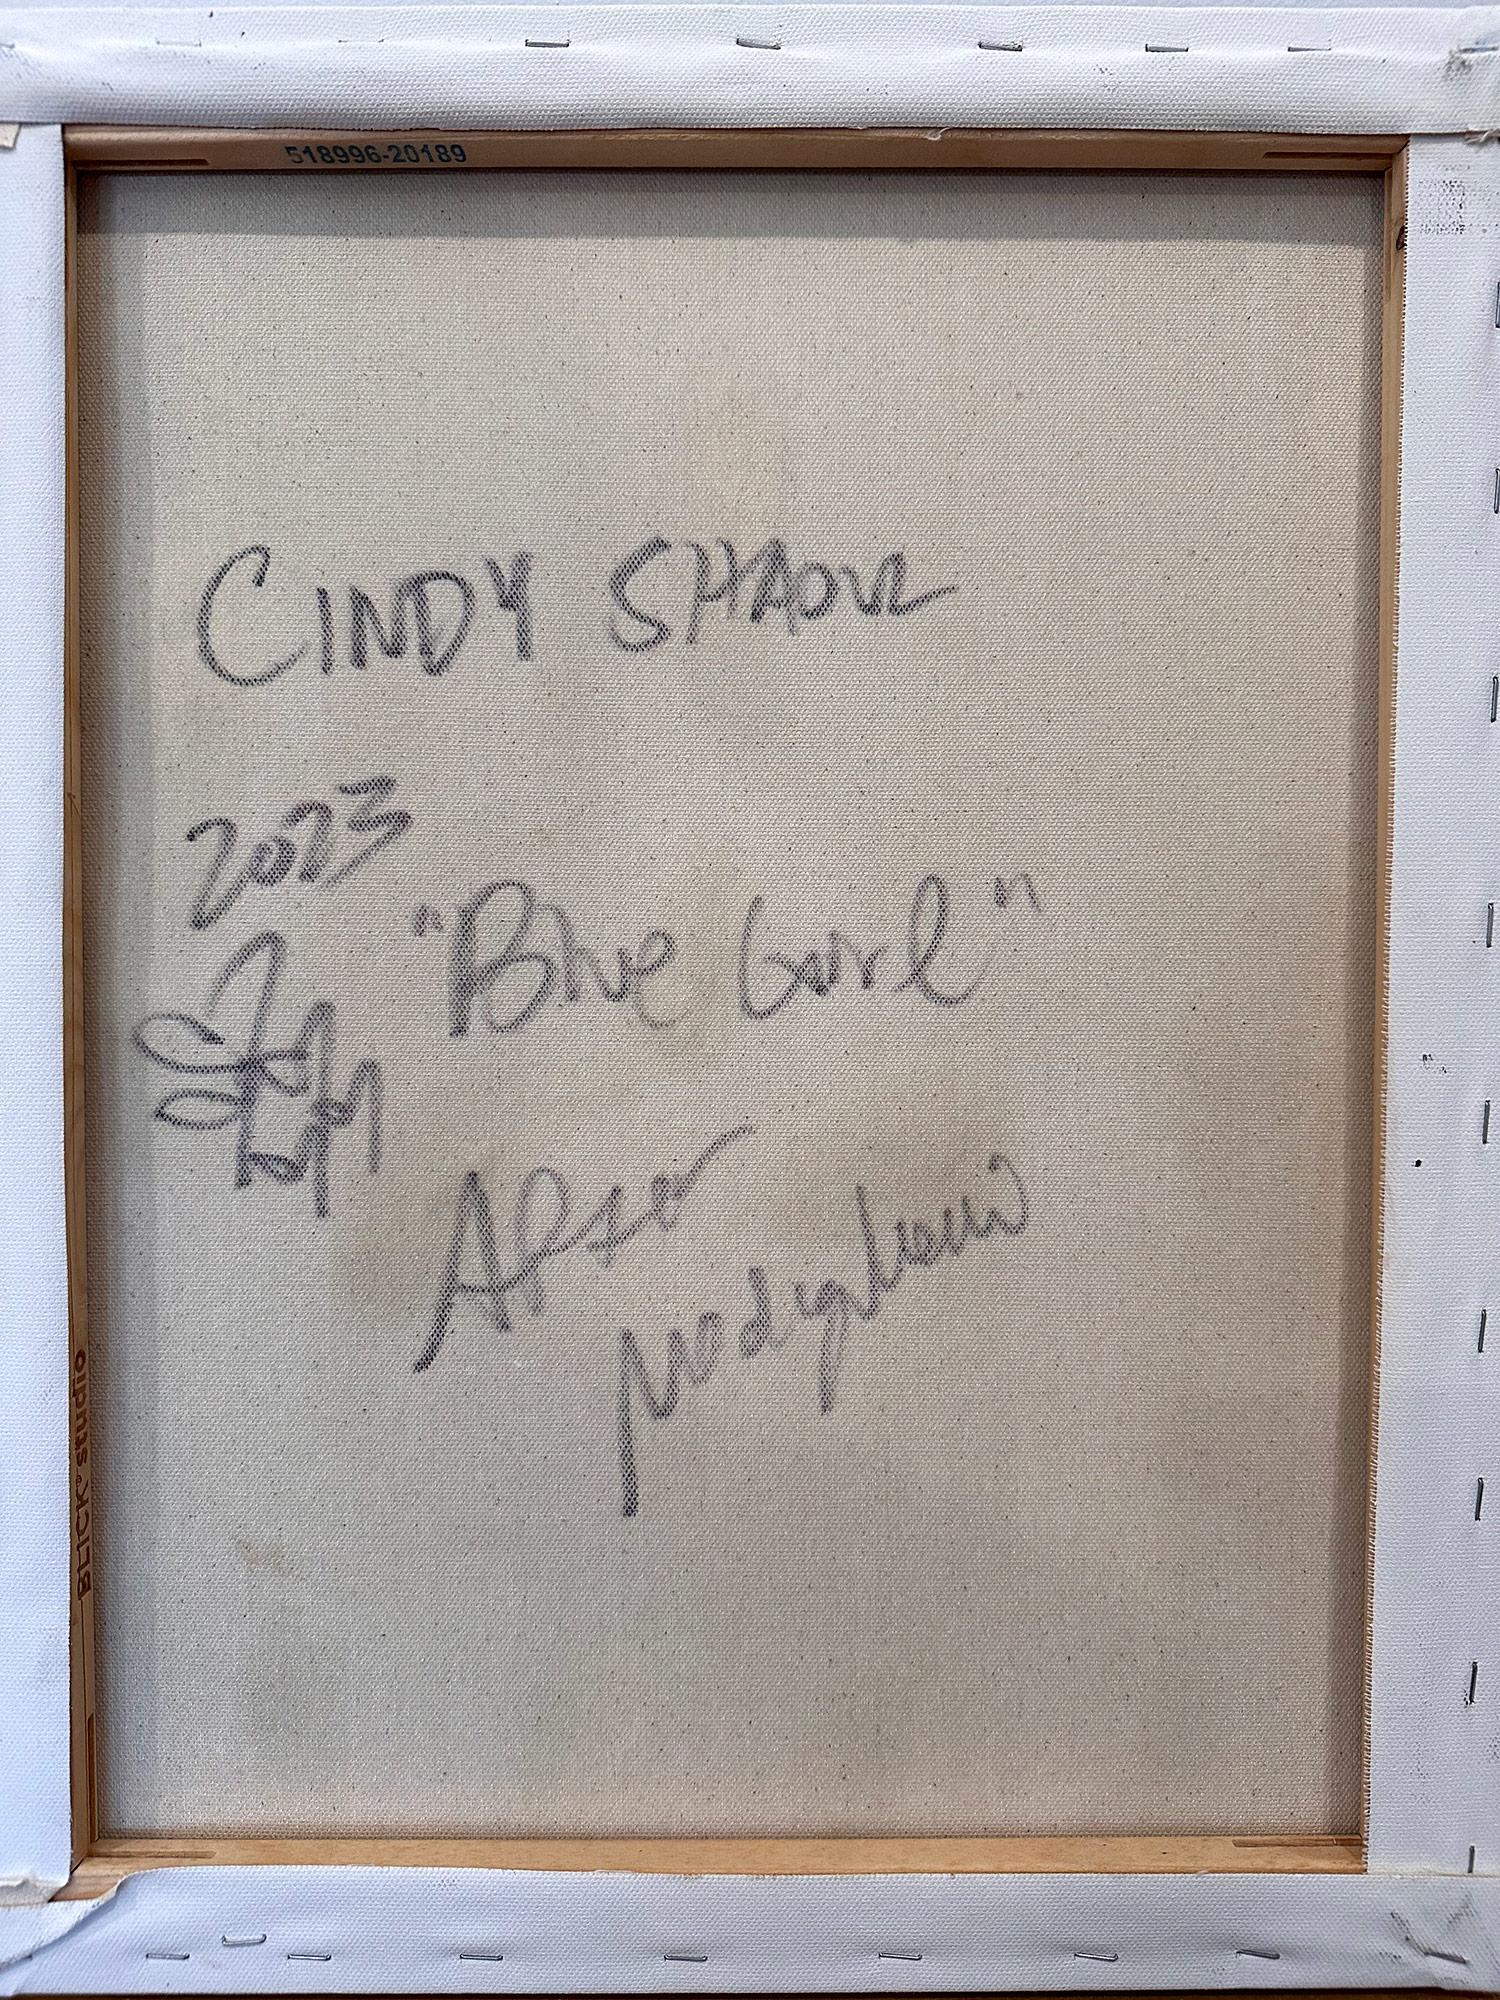 518996-20189
CINDY SHAOUL
2023
"Blue Girl"
AFTER
Modigliani
BLICK® studio